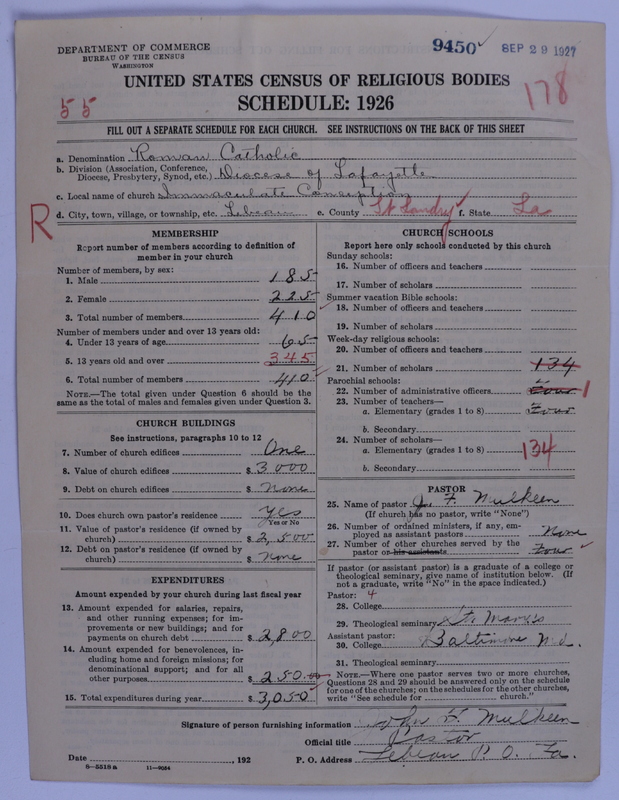 DEPARTMENT OF COMMERCE
BUREAU OF THE CENSUS
WASHINGTON
9450 ✓ SEP 29 1927
UNITED STATES CENSUS OF RELIGIOUS BODIES
SCHEDULE: 1926
55
178
FILL OUT A SEPARATE SCHEDULE FOR EACH CHURCH. SEE INSTRUCTIONS ON THE BACK OF THIS SHEET
a. Denomination Roman Catholic
b. Division (Association, Conference, Diocese, Presbytery, Synod, etc.) Diocese of Lafayette
c. Local name of church Immaculate Conception
R
d. City, town, village, or township, etc. Lebeau e. County St Landry ✓ f. State La
MEMBERSHIP
Report number of members according to definition of
member in your church
Number of members, by sex:
1. Male 185
2. Female 225
3. Total number of members 410 ✓
Number of members under and over 13 years old:
4. Under 13 years of age 65
5. 13 years old and over 345
6. Total number of members 410 ✓
NOTE.—The total given under Question 6 should be the
same as the total of males and females given under Question 3.
CHURCH BUILDINGS
See instructions, paragraphs 10 to 12
7. Number of church edifices One
8. Value of church edifices $ 3000
9. Debt on church edifices $ none
10. Does church own pastor's residence yes
Yes or No
11. Value of pastor's residence (if owned by
church) $ 2,500
12. Debt on pastor's residence (if owned by
church) $ none
EXPENDITURES
Amount expended by your church during last fiscal year
13. Amount expended for salaries, repairs,
and other running expenses; for im-
provements or new buildings; and for
payments on church debt $ 2,800
14. Amount expended for benevolences, in-
cluding home and foreign missions; for
denominational support; and for all
other purposes $ 250.00
15. Total expenditures during year $ 3,050 ✓
CHURCH SCHOOLS
Report here only schools conducted by this church
Sunday schools:
16. Number of officers and teachers
17. Number of scholars
Summer vacation Bible schools:
18. Number of officers and teachers
19. Number of scholars
Week-day religious schools:
20. Number of officers and teachers
21. Number of scholars 134
Parochial schools:
22. Number of administrative officers Four 1
23. Number of teachers—
a. Elementary (grades 1 to 8) Four
b. Secondary
24. Number of scholars—
a. Elementary (grades 1 to 8) 134
b. Secondary
PASTOR
25. Name of pastor J. F. Mulkeen
(If church has no pastor, write "None")
26. Number of ordained ministers, if any, em-
ployed as assistant pastors None
27. Number of other churches served by the
pastor or his assistants Four ✓
If pastor (or assistant pastor) is a graduate of a college or
theological seminary, give name of institution below. (If
not a graduate, write "No" in the space indicated.)
Pastor: 4
28. College
29. Theological seminary St. Mary's
Assistant pastor:
30. College Baltimore Md.
31. Theological seminary
NOTE.—Where one pastor serves two or more churches,
Questions 28 and 29 should be answered only on the schedule
for one of the churches; on the schedules for the other churches,
write "See schedule for church."
Signature of person furnishing information John F. Mulkeen
Official title Pastor
Date , 192 P. O. Address Lebeau P. O. La.
8—5518a 11—9054